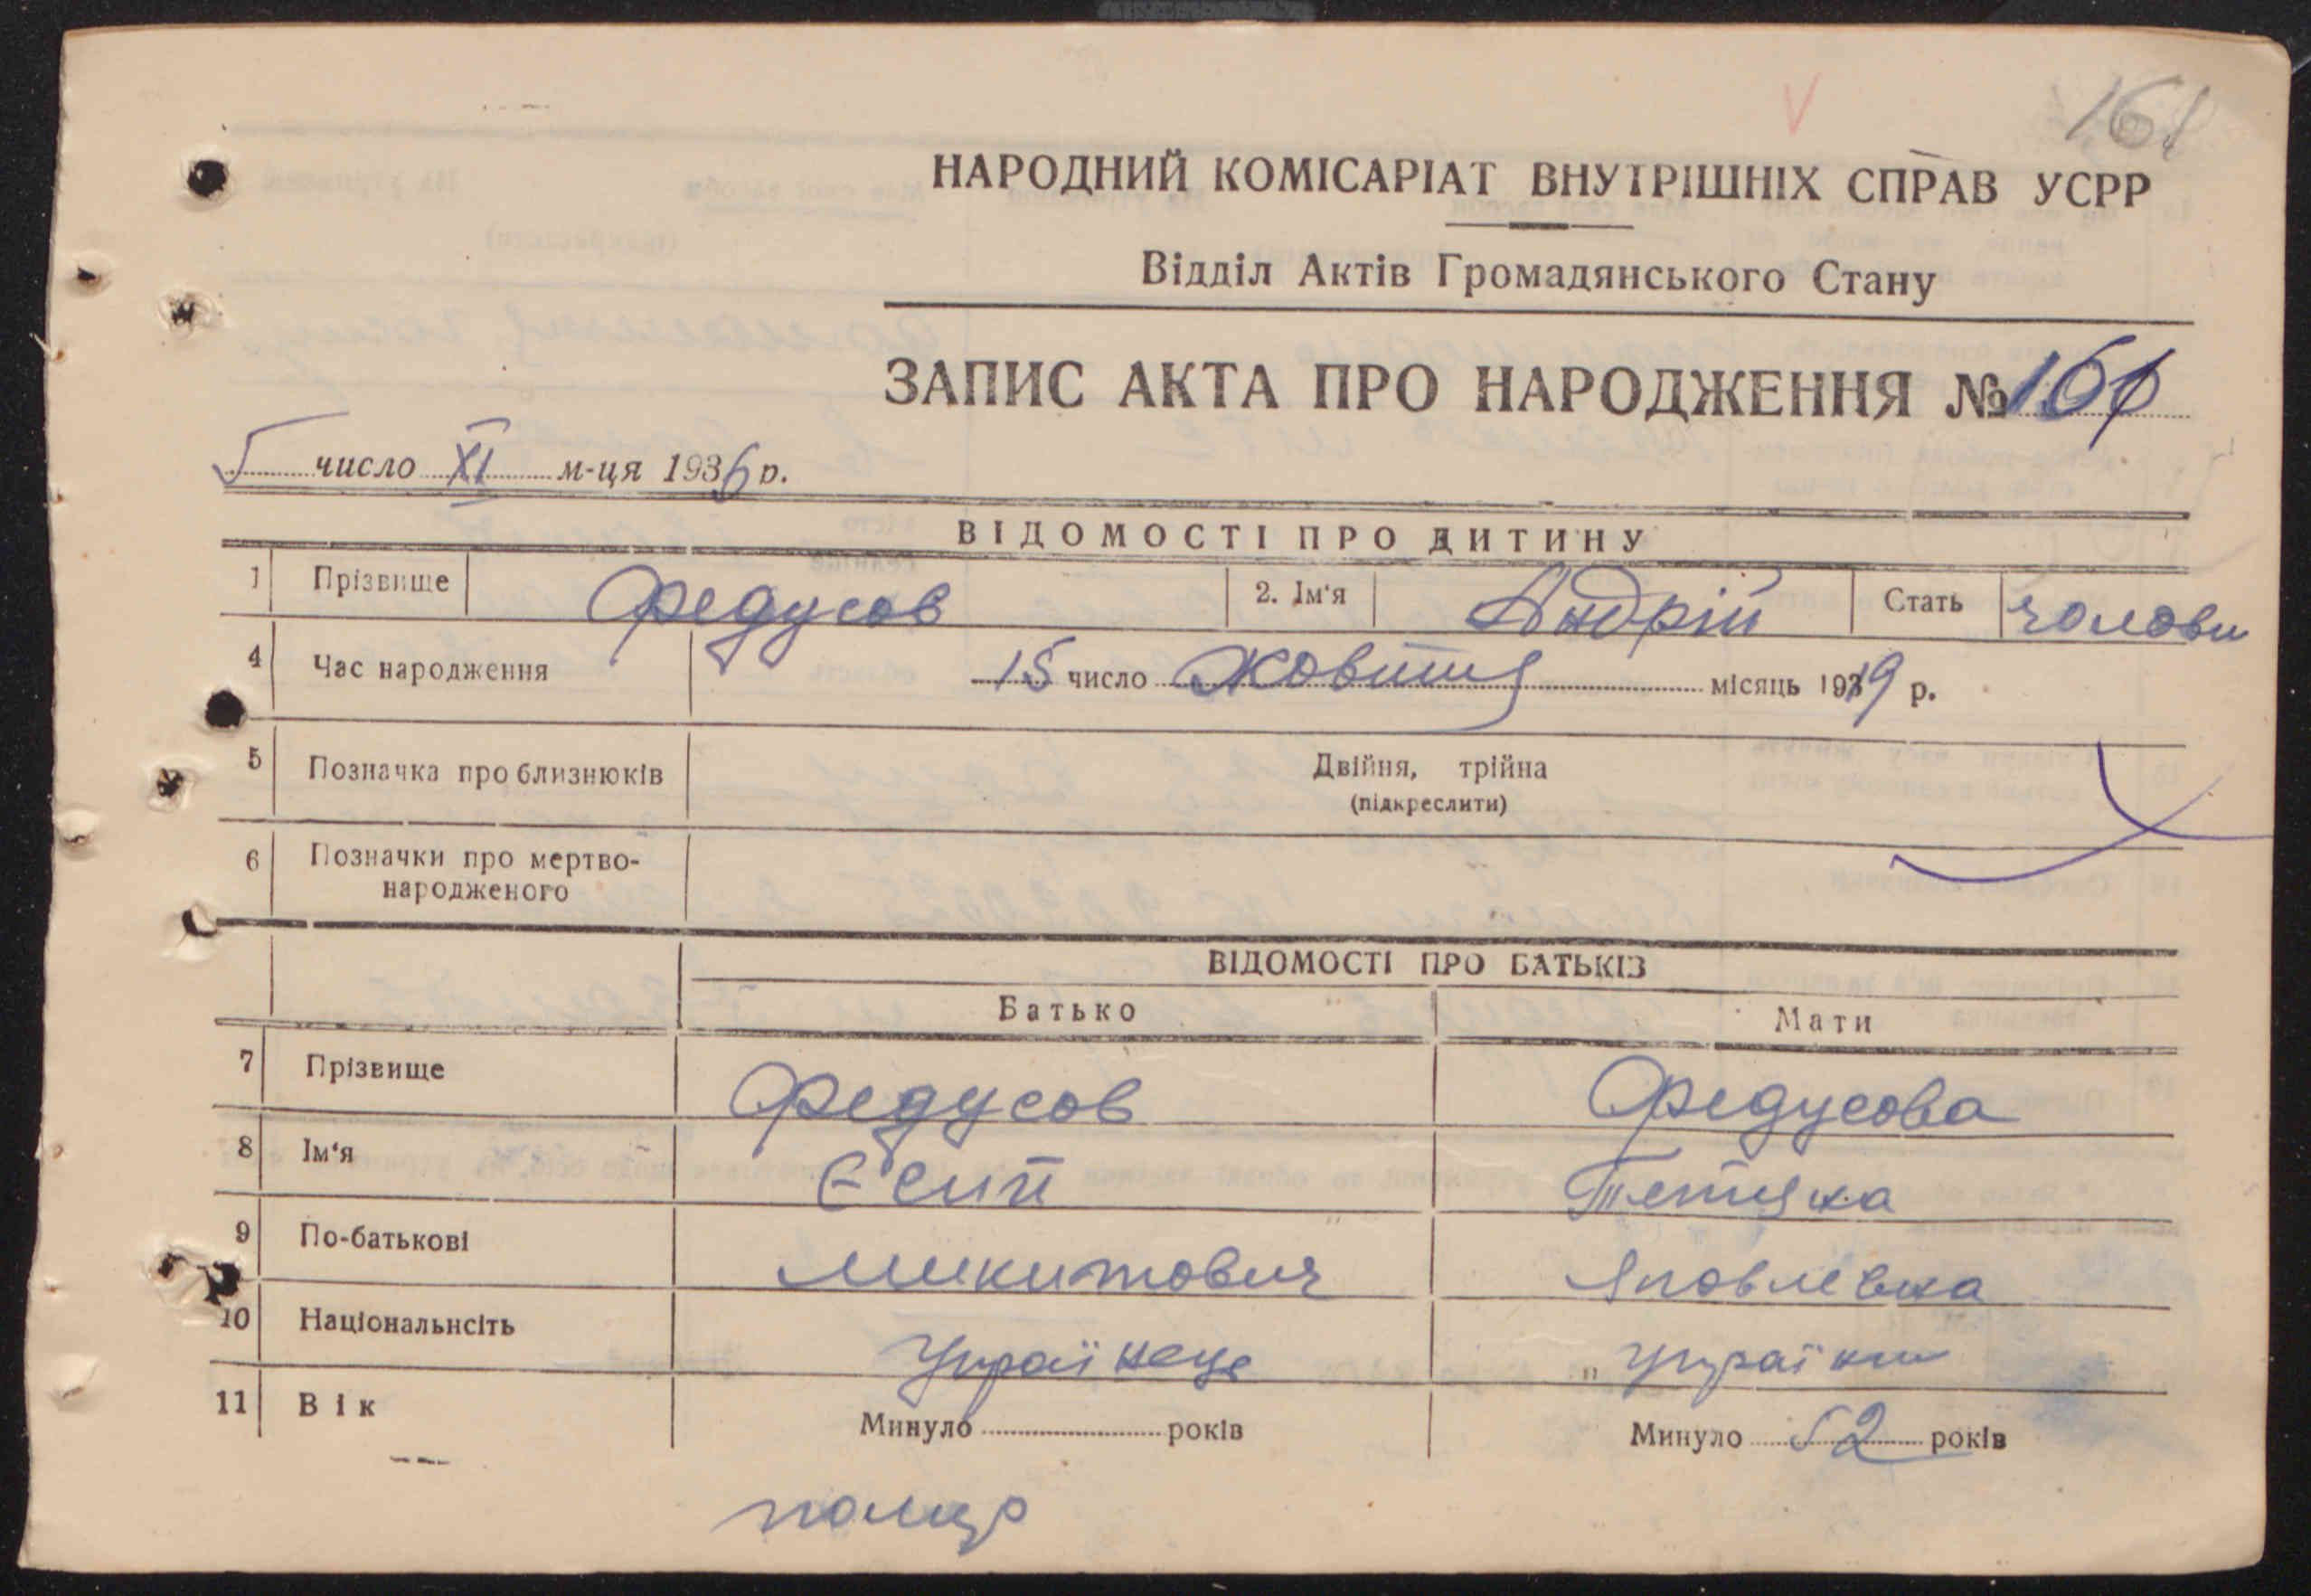 161
НАРОДНИЙ КОМІСАРІАТ ВНУТРІШНІХ СПРАВ УСРР
Відділ Актів Громадянського Стану
ЗАПИС АКТА ПРО НАРОДЖЕННЯ № 161
5 число XI м-ця 1936 р.
ВІДОМОСТІ ПРО ДИТИНУ
1 Прізвище Федусов 2. Ім'я Андрій Стать чолови
4 Час народження 15 число Жовтня місяць 1919 р.
5 Позначка про близнюків Двійня, трійна
(підкреслити)
6 Позначки про мертво-
народженого
ВІДОМОСТІ ПРО БАТЬКІВ
Батько Мати
7 Прізвище Федусов Федусова
8 Ім'я Єсип Тетяна
9 По-батькові Микитович Яковлевна
10 Національнсіть Українець Українка
11 Вік Минуло років Минуло 52 років